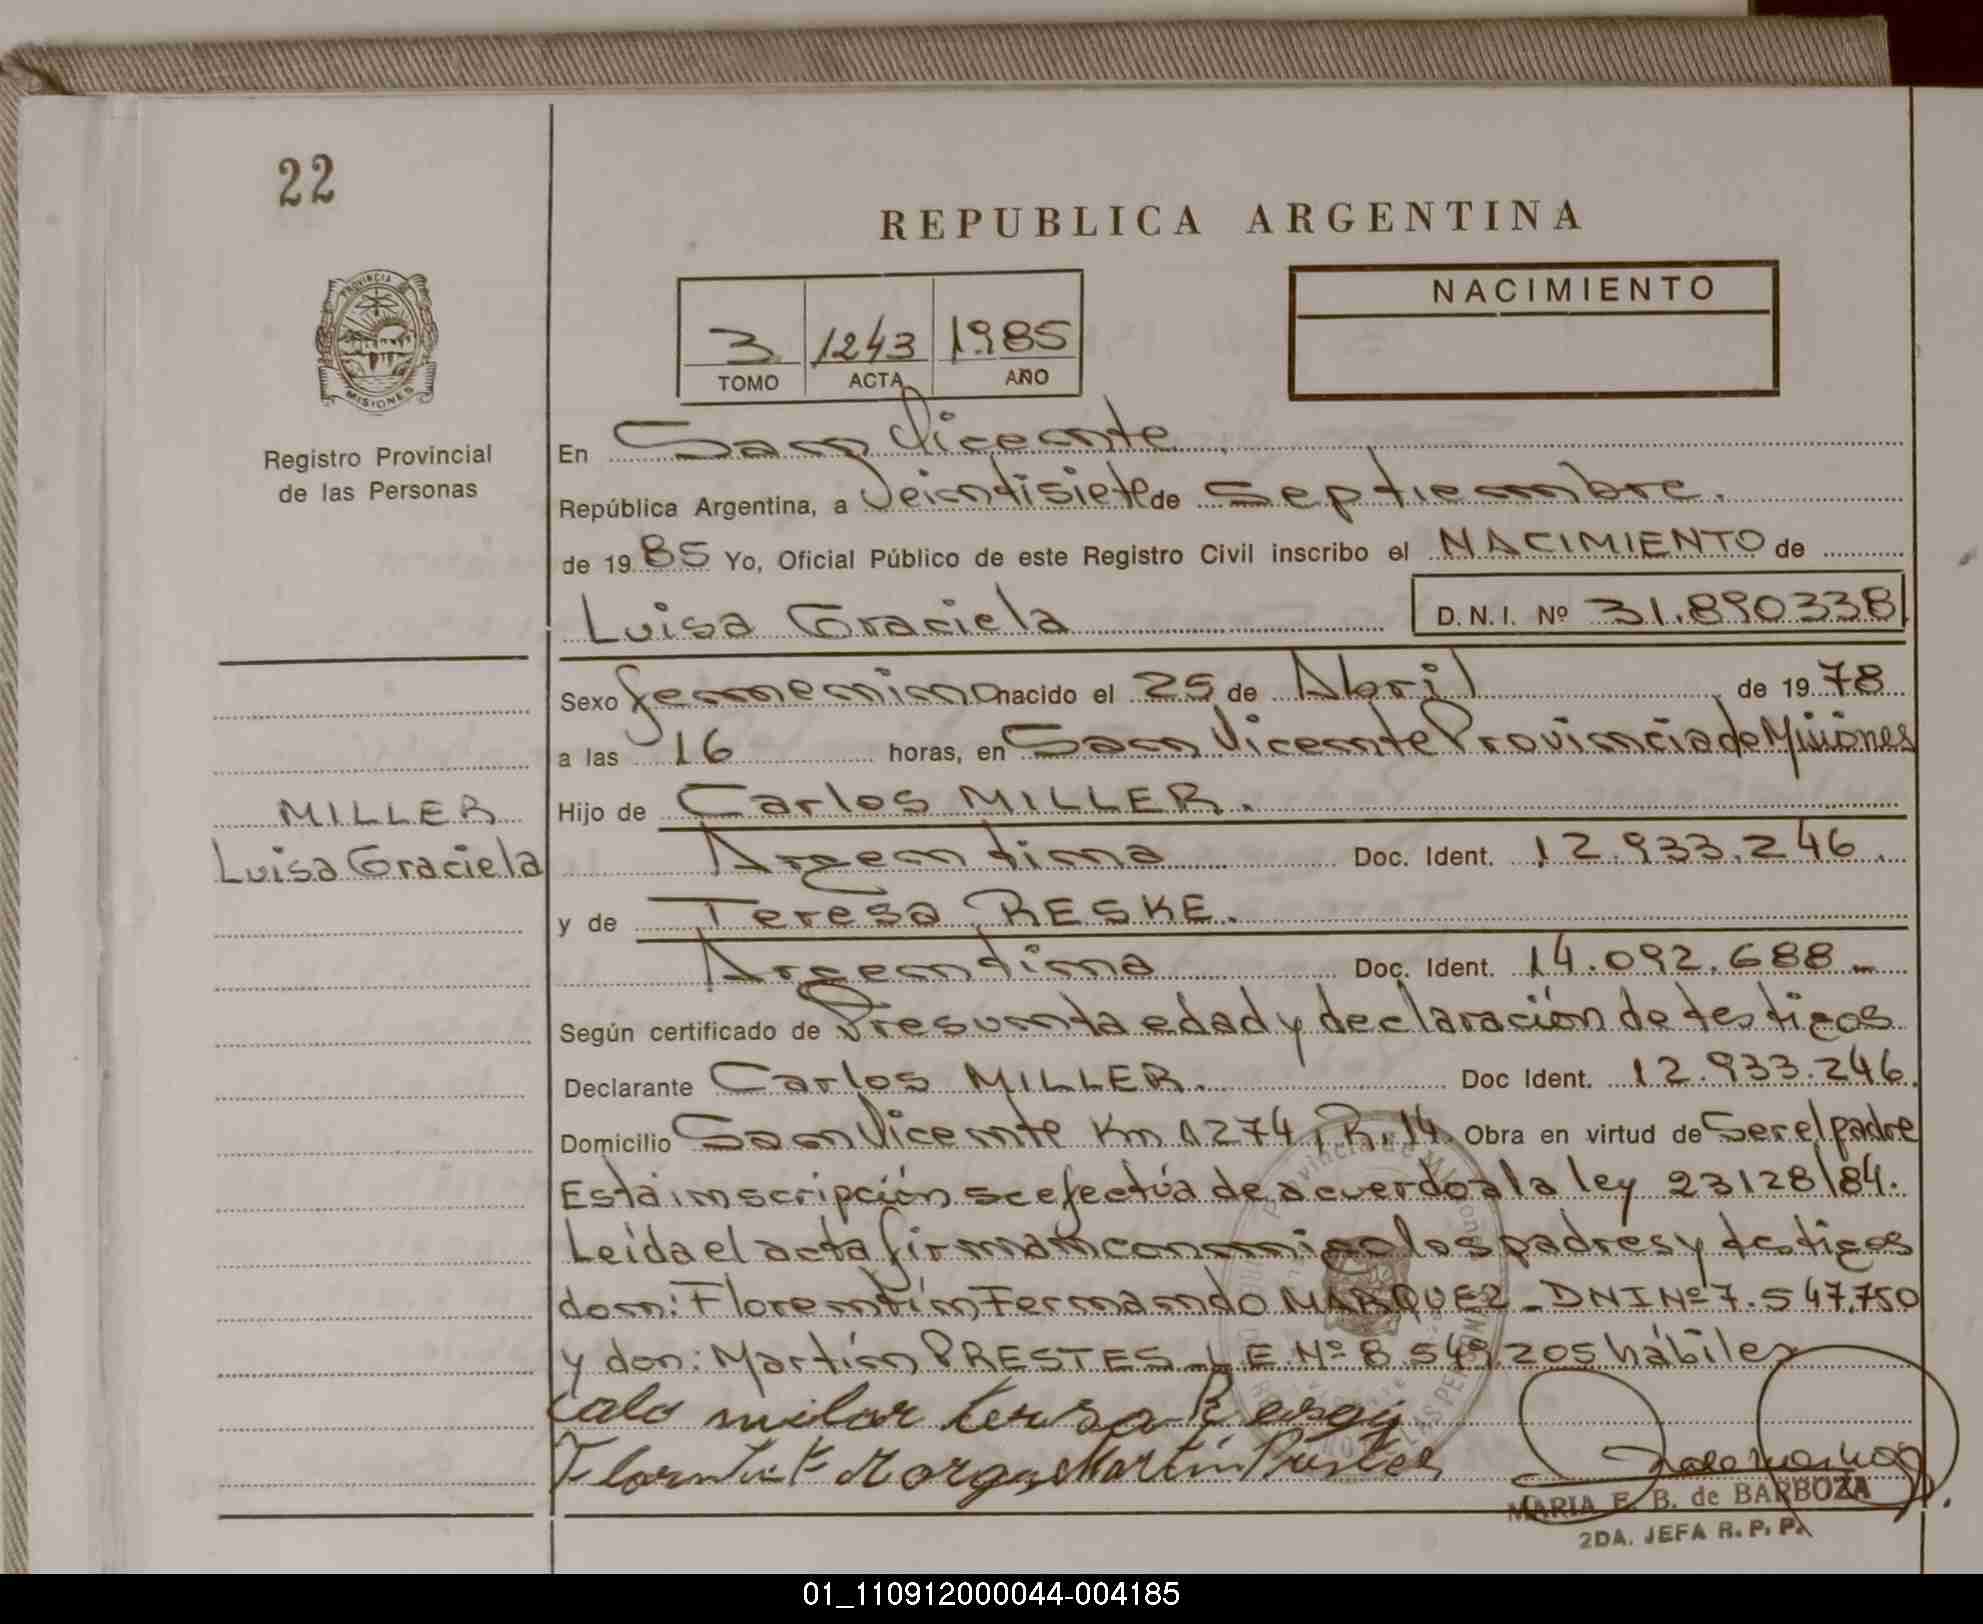 22
REPUBLICA ARGENTINA
PROVINCIA DE
MISIONES
Registro Provincial
de las Personas
3 1243 1985
TOMO ACTA AÑO
NACIMIENTO
En San Vicente
República Argentina, a Veintisiete de Septiembre.
de 1985 Yo, Oficial Público de este Registro Civil inscribo el NACIMIENTO de
Luisa Graciela D.N.I. Nº 31.890338
Sexo femenino nacido el 25 de Abril de 1978
a las 16 horas, en San Vicente Provincia de Misiones
MILLER
Luisa Graciela
Hijo de Carlos MILLER.
Argentina Doc. Ident. 12.933.246.
y de Teresa RESKE.
Argentina Doc. Ident. 14.092.688.-
Según certificado de Presunta edad y declaración de testigos
Declarante Carlos MILLER. Doc Ident. 12.933.246.
Domicilio San Vicente Km 1274, R. 14. Obra en virtud de Ser el padre
Esta inscripción se efectúa de acuerdo a la ley 23128/84.
Leída el acta firman conmigo los padres y testigos
don: Florentín Fernando MARQUEZ - DNI Nº 7.547.750
y don: Martín PRESTES L.E. Nº 8.549.205 hábiles
calo milar tersa
Martin Prestes
MARIA E. B. de BARBOZA
2DA. JEFA R. P. P.
01_110912000044-004185